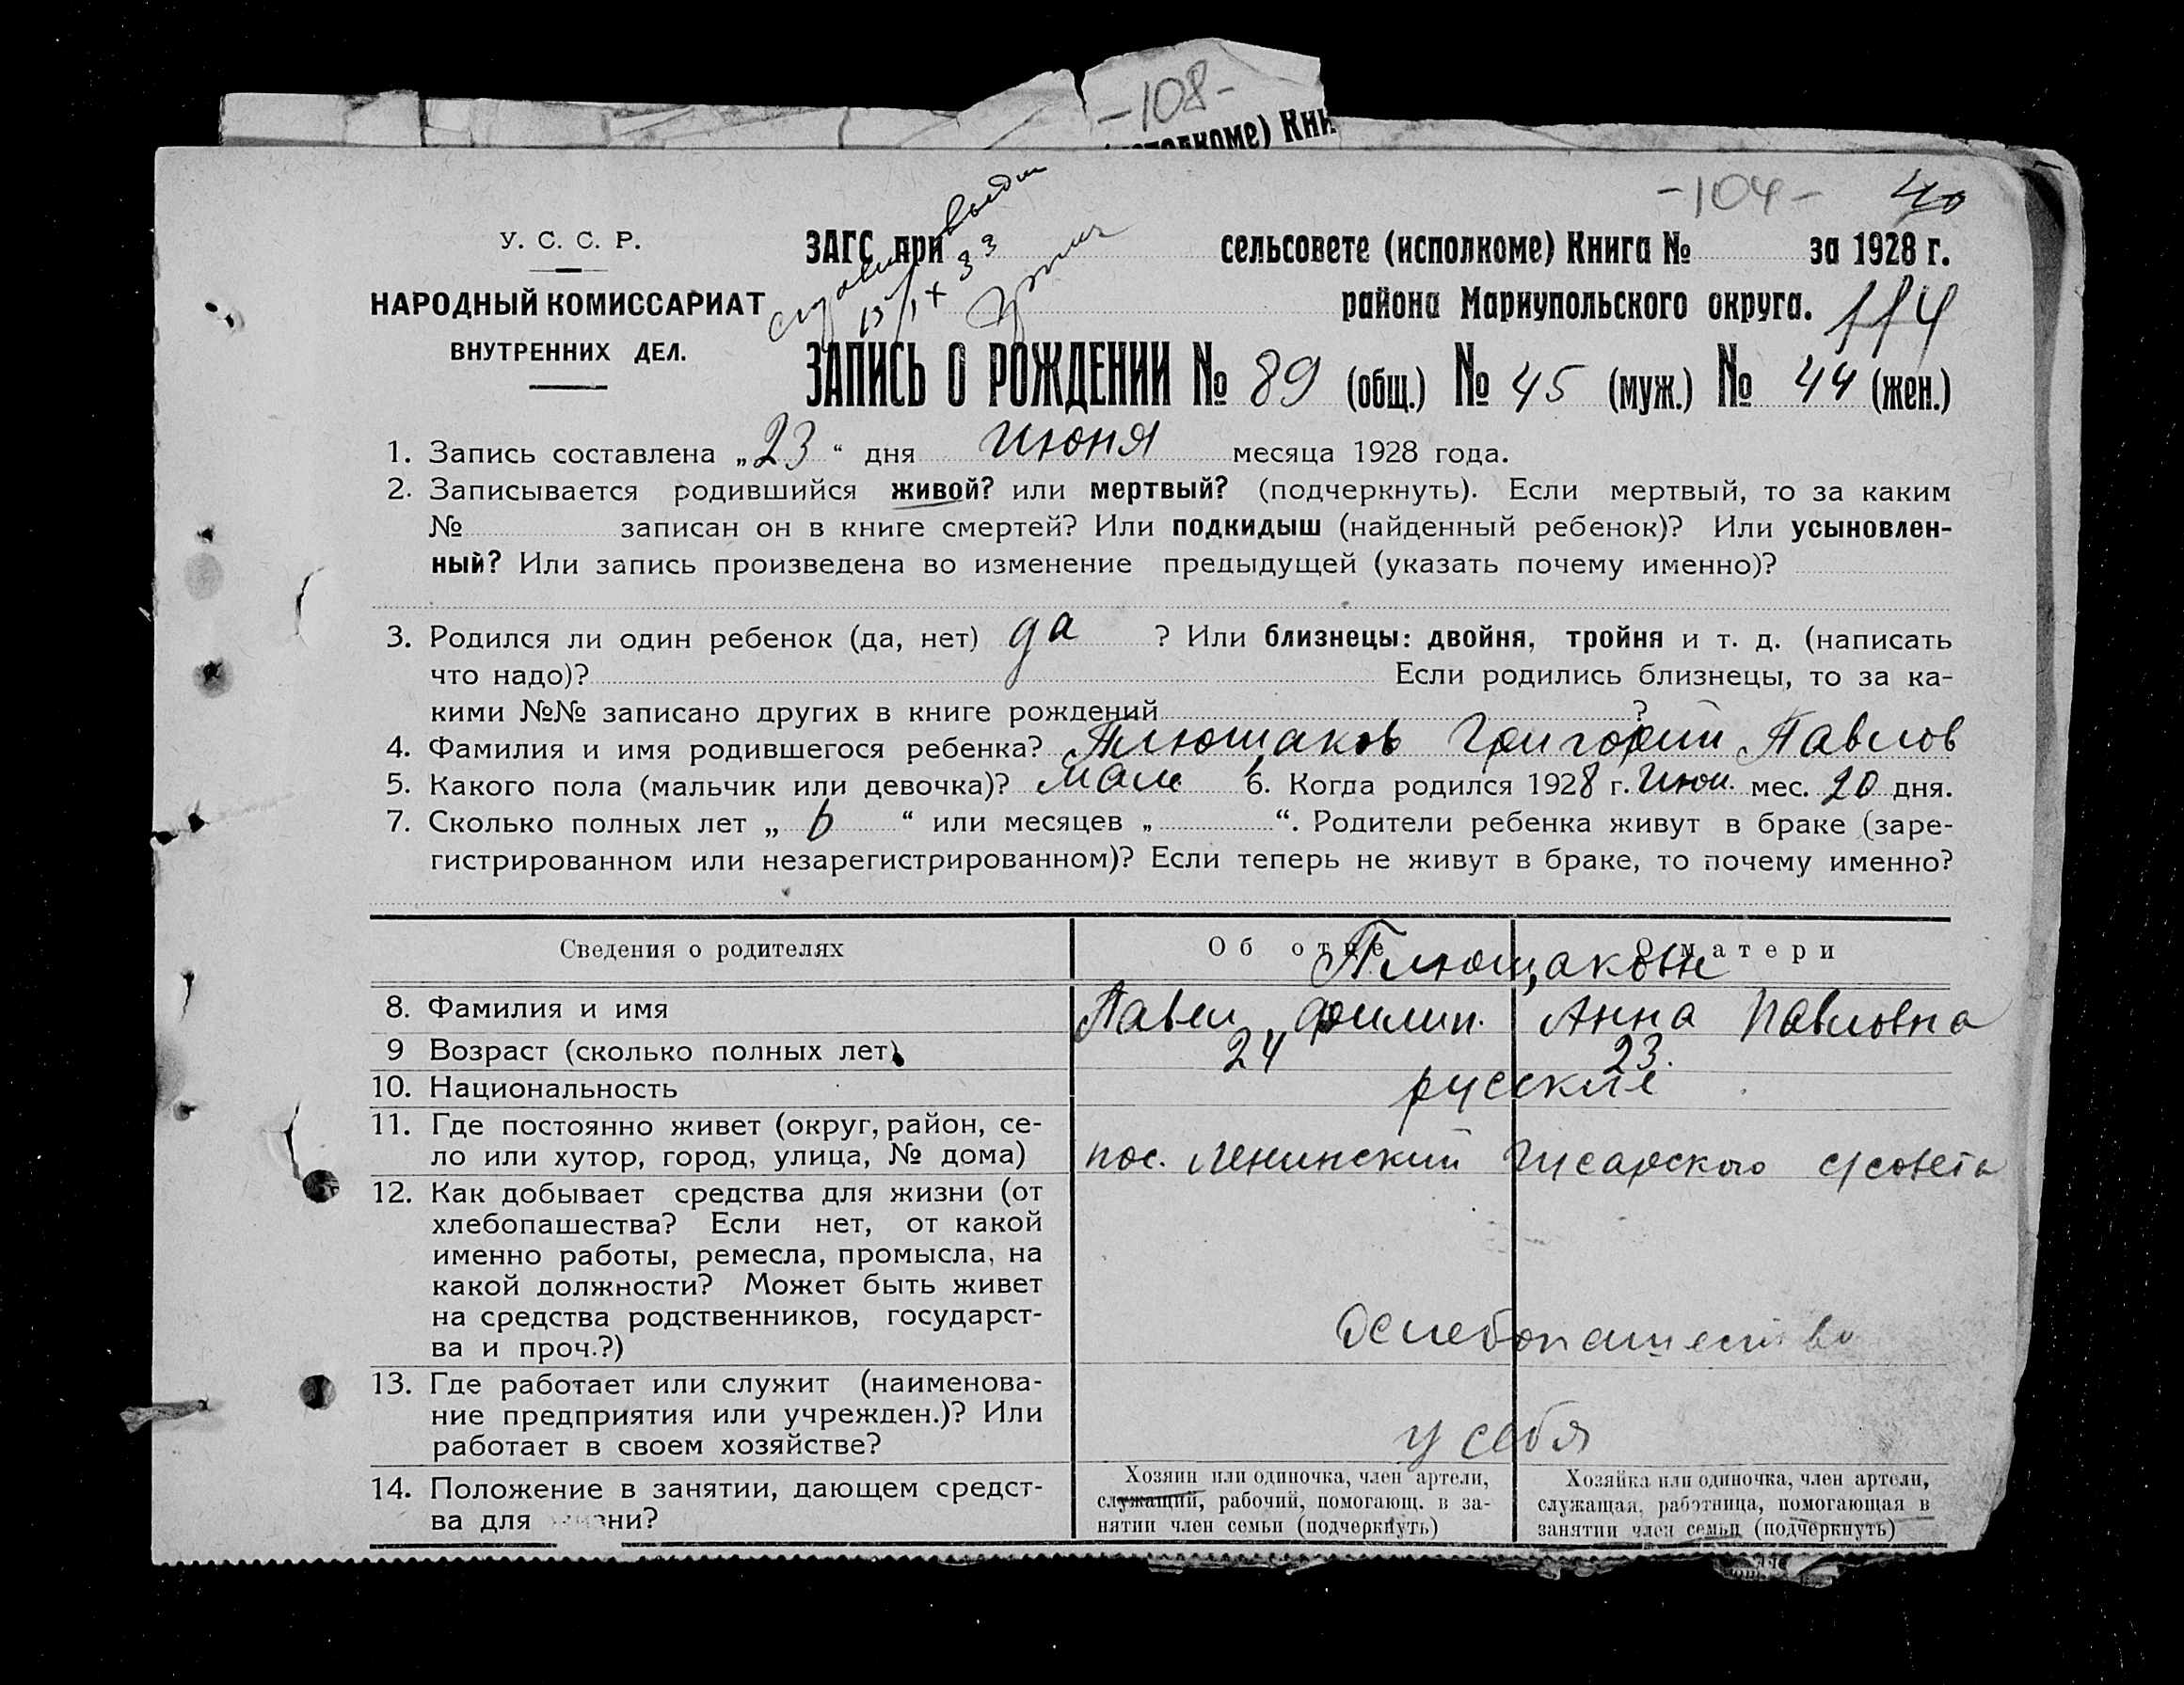 -108-
(исполкоме) Кни
-104- 40
У. С. С. Р.
НАРОДНЫЙ КОМИССАРИАТ
ВНУТРЕННИХ ДЕЛ.
выдан
13/IX 33
ЗАГС при сельсовете (исполкоме) Книга № за 1928 г.
района Мариупольского округа. 114
ЗАПИСЬ О РОЖДЕНИИ № 89 (общ.) № 45 (муж.) № 44 (жен.)
1. Запись составлена „23“ дня июня месяца 1928 года.
2. Записывается родившийся живой? или мертвый? (подчеркнуть). Если мертвый, то за каким
№ записан он в книге смертей? Или подкидыш (найденный ребенок)? Или усыновлен-
ный? Или запись произведена во изменение предыдущей (указать почему именно)?
3. Родился ли один ребенок (да, нет) да ? Или близнецы: двойня, тройня и т. д. (написать
что надо)? Если родились близнецы, то за ка-
кими №№ записано других в книге рождений ?
4. Фамилия и имя родившегося ребенка? Плющаков Григорий Павлов
5. Какого пола (мальчик или девочка)? мальч 6. Когда родился 1928 г. Июн. мес. 20 дня.
7. Сколько полных лет „ 6 “ или месяцев „ “. Родители ребенка живут в браке (заре-
гистрированном или незарегистрированном)? Если теперь не живут в браке, то почему именно?
Сведения о родителях Об отце О матери
Плющаковы
8. Фамилия и имя Павел Филип. Анна Павловна
9 Возраст (сколько полных лет) 24 23.
10. Национальность русские
11. Где постоянно живет (округ, район, се-
ло или хутор, город, улица, № дома) пос. Ленинский Гусарского с/совета
12. Как добывает средства для жизни (от
хлебопашества? Если нет, от какой
именно работы, ремесла, промысла, на
какой должности? Может быть живет
на средства родственников, государст-
ва и проч.?) Хлебопашество
13. Где работает или служит (наименова-
ние предприятия или учрежден.)? Или
работает в своем хозяйстве? у себя
14. Положение в занятии, дающем средст-
ва для жизни?
Хозяин или одиночка, член артели,
служащий, рабочий, помогающ. в за-
нятии член семьи (подчеркнуть)
Хозяйка или одиночка, член артели,
служащая, работница, помогающая в
занятии член семьи (подчеркнуть)